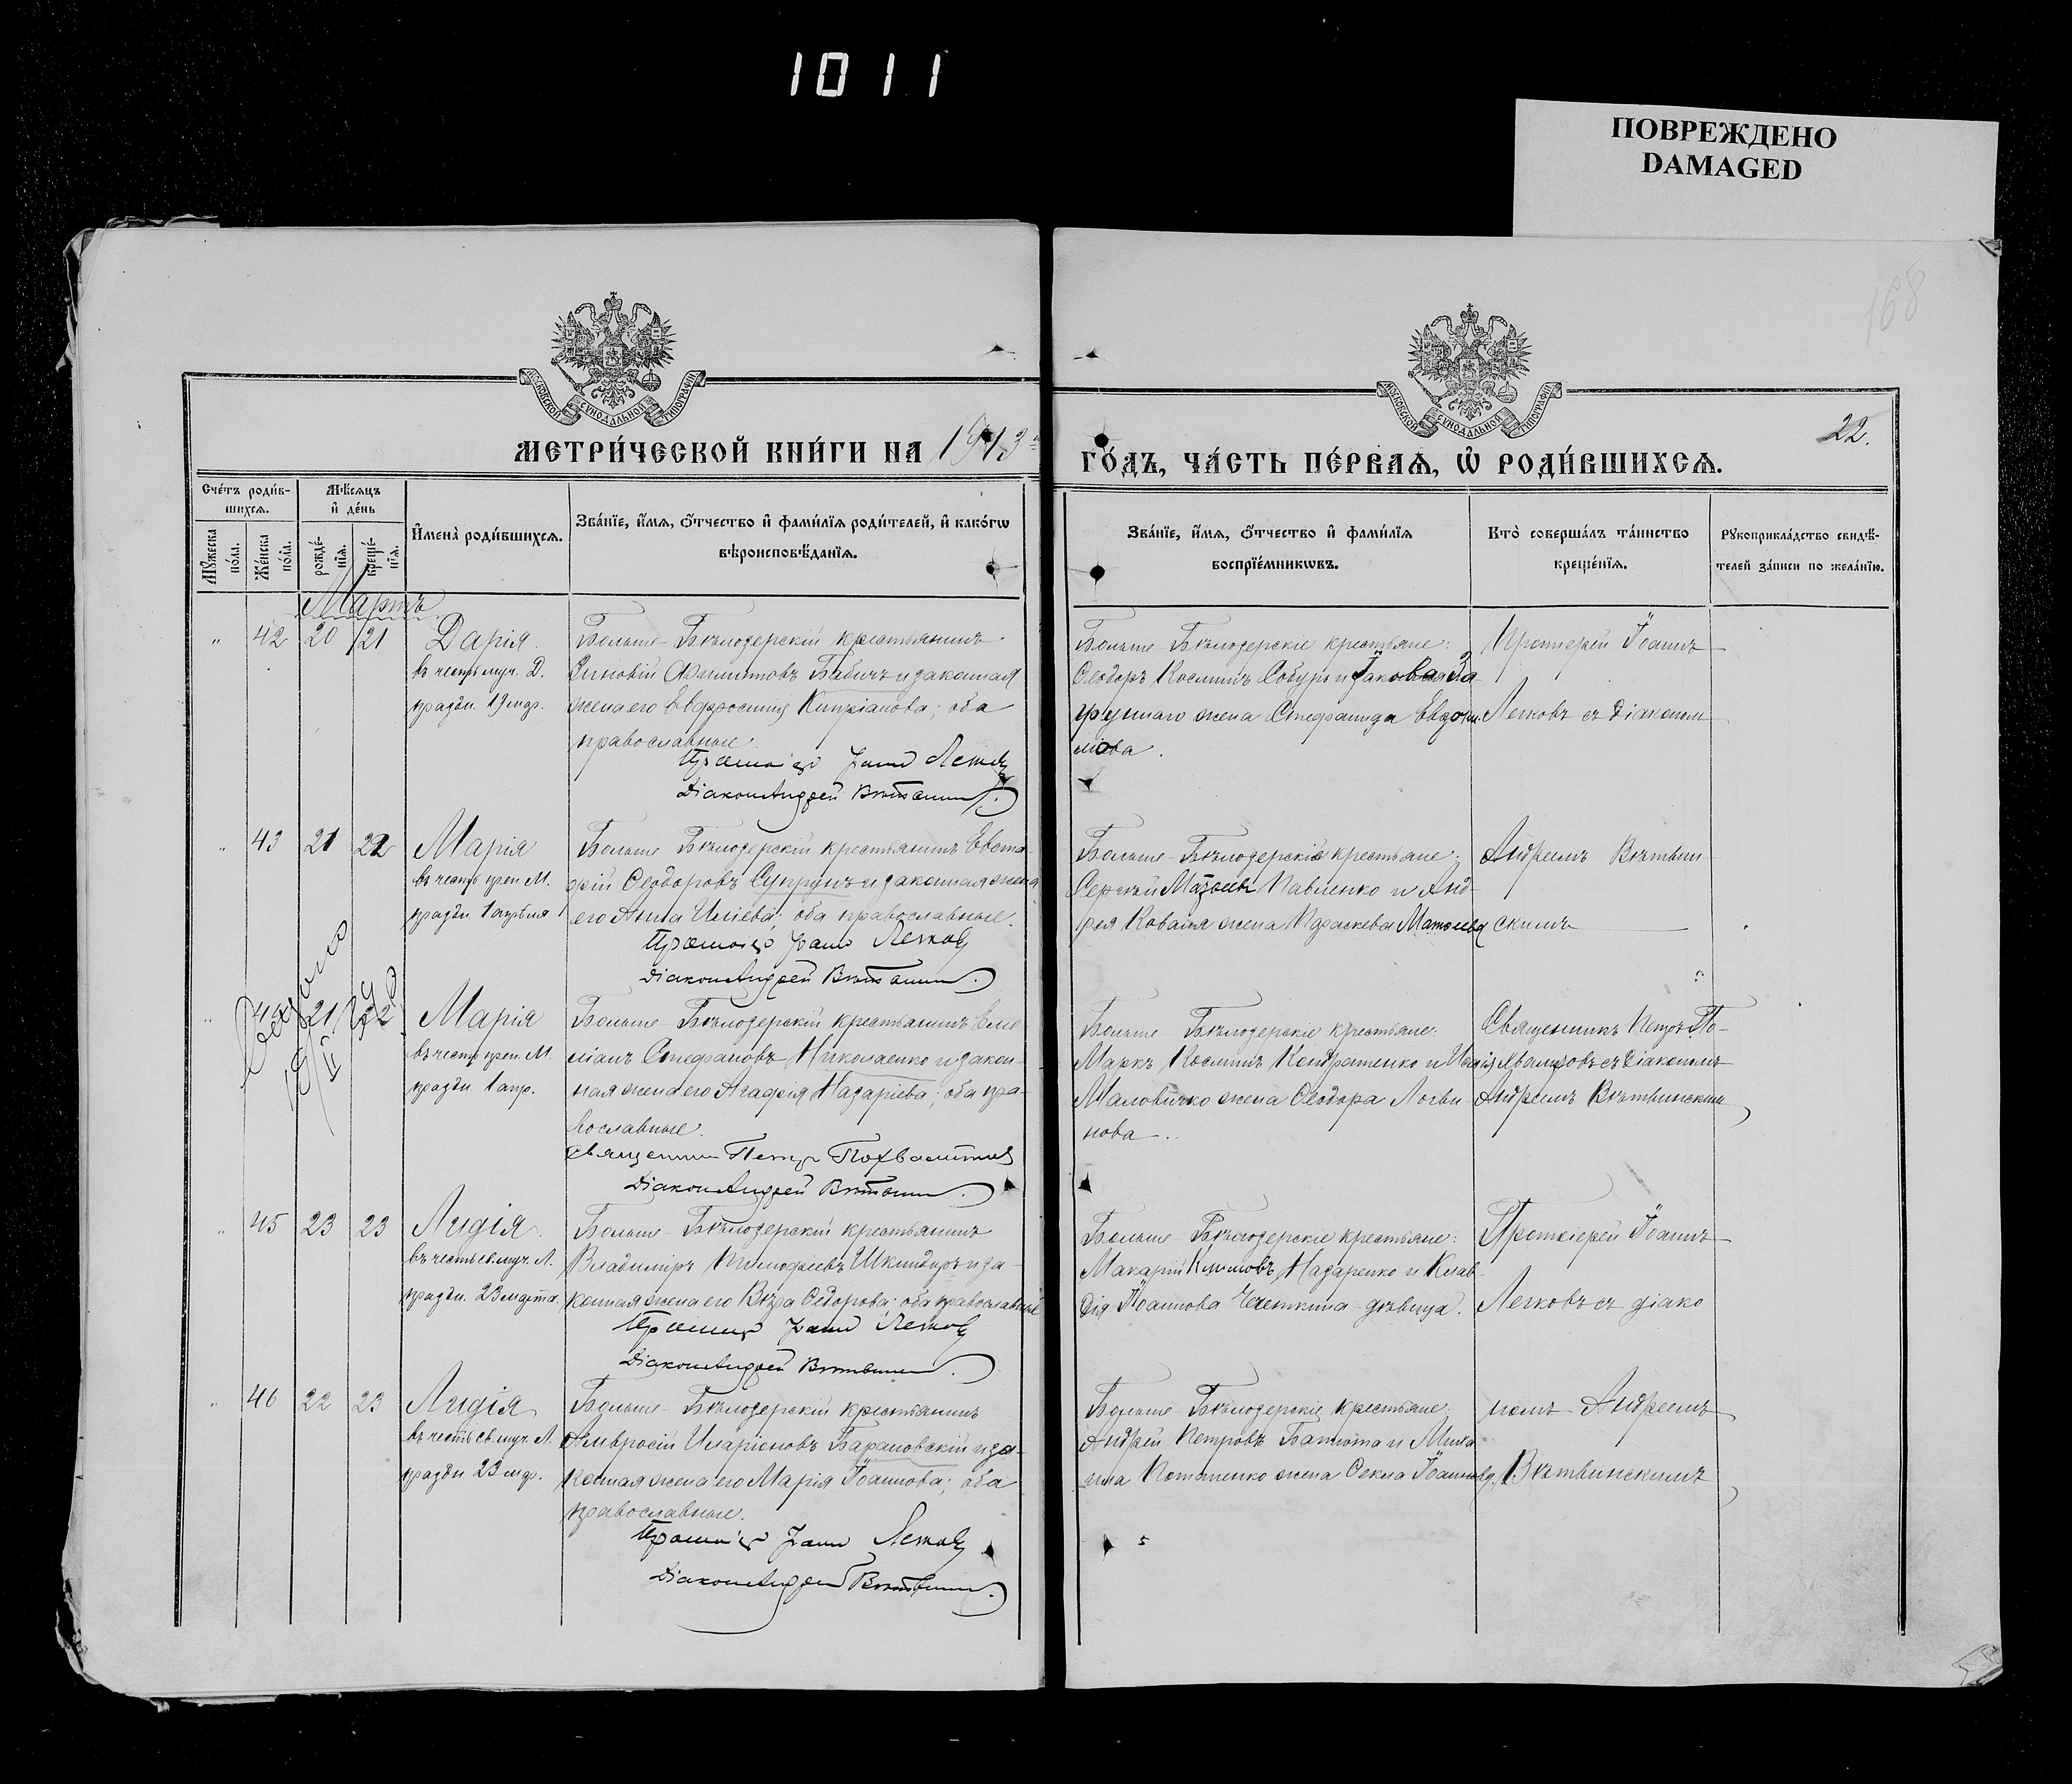 1011
ПОВРЕЖДЕНО
DAMAGED
168
МОСКОВСКОЙ СѴНОДАЛЬНОЙ ТИПОГРАФІИ
МОСКОВСКОЙ СѴНОДАЛЬНОЙ ТИПОГРАФІИ
МЕТРИ́ЧЕСКОЙ КНИ́ГИ НА 1913
ГО́ДЪ, ЧА́СТЬ ПЕ́РВАѦ, Ѡ҆ РОДИ́ВШИХСѦ.
22.
Сче́тъ роди́в-
шихсѧ.
Мꙋжеска по́ла.
Же́нска по́ла.
Мѣ́сѧцъ
и҆ де́нь
рожде́-
нїѧ.
креще́-
нїѧ.
И҆мена̀ роди́вшихсѧ.
Зва́нїе, и҆́мѧ, ѻ҆́тчество и҆ фами́лїѧ роди́телей, и҆ како́гѡ
вѣроисповѣ́данїѧ.
Зва́нїе, и҆́мѧ, ѻ҆́тчество и҆ фами́лїѧ
воспрїе́мникѡвъ.
Кто̀ соверша́лъ та́инство
креще́нїѧ.
Рꙋкоприкла́дство свидѣ́-
телей за́писи по жела́нїю.
Мартъ
" 42 20 21 Дарія
въ честь муч. Д.
праздн. 19 мар.
Больше-Бѣлозерскій крестьянинъ
Зиновій Филиповъ Бабичъ и законная
жена его Евфросинія Кипріанова; оба
православные.
Протоіерей Іоаннъ Легков
Діаконъ Андрей Вѣтвин
Больше-Бѣлозерскіе крестьяне:
Ѳеодоръ Косминъ Собуръ и Іакова
жена Стефанида Евдоки
мова.
Протоіерей Іоаннъ
Легковъ съ Діакономъ
" 43 21 22 Марія
въ честь преп. М.
праздн. 1 апрѣля
Больше-Бѣлозерскій крестьянинъ Евста-
фій Ѳеодоровъ Супрунъ и законная жена
его Анна Иліева; оба православные.
Протоіер Іоанн Легков
Діаконъ Андрей Вѣтвин
Больше-Бѣлозерскіе крестьяне:
Сергѣй Павленко и Анд-
рея Коваля жена Параскева Матѳеева
Андреемъ Вѣтвин-
скимъ
" 44 21 22 Марія
въ честь преп. М.
праздн. 1 апр.
Больше-Бѣлозерскій крестьянинъ Еме
ліанъ Стефановъ Николаенко и закон-
ная жена его Агафія Назаріева; оба пра-
вославные.
Священник Петр Похвалитов
Діаконъ Андрей Вѣтвин
Больше-Бѣлозерскіе крестьяне:
Маркъ Косминъ Кондратенко и
Маловичко жена Ѳеодора Логви
нова.
Священникъ Петръ По-
хвалитовъ съ Діакономъ
Андреемъ Вѣтвинским
" 45 23 23 Лидія
въ честь св. муч. Л.
праздн. 23 марта.
Больше-Бѣлозерскій крестьянинъ
Владиміръ Тимофеевъ Шкиндиръ и за-
конная жена его Вѣра Ѳедорова; оба православные
Протоіер Іоанн Легков
Діаконъ Андрей Вѣтвин
Больше-Бѣлозерскіе крестьяне:
Макарій Климовъ Назаренко и Клав-
дія Іоаннова дѣвица.
Протоіерей Іоаннъ
Легковъ съ діако
" 46 22 23 Лидія
въ честь св. муч. Л.
праздн. 23 мар.
Больше-Бѣлозерскій крестьянинъ
Амвросій Иларіоновъ Барановскій и за-
конная жена его Марія Іоаннова; оба
православные.
Протоіер Іоанн Легков
Діаконъ Андрей Вѣтвин
Больше-Бѣлозерскіе крестьяне:
Андрей Петровъ Батюта и Миха
ила Потапенко жена Ѳекла Іоаннова.
номъ Андреемъ
Вѣтвинскимъ